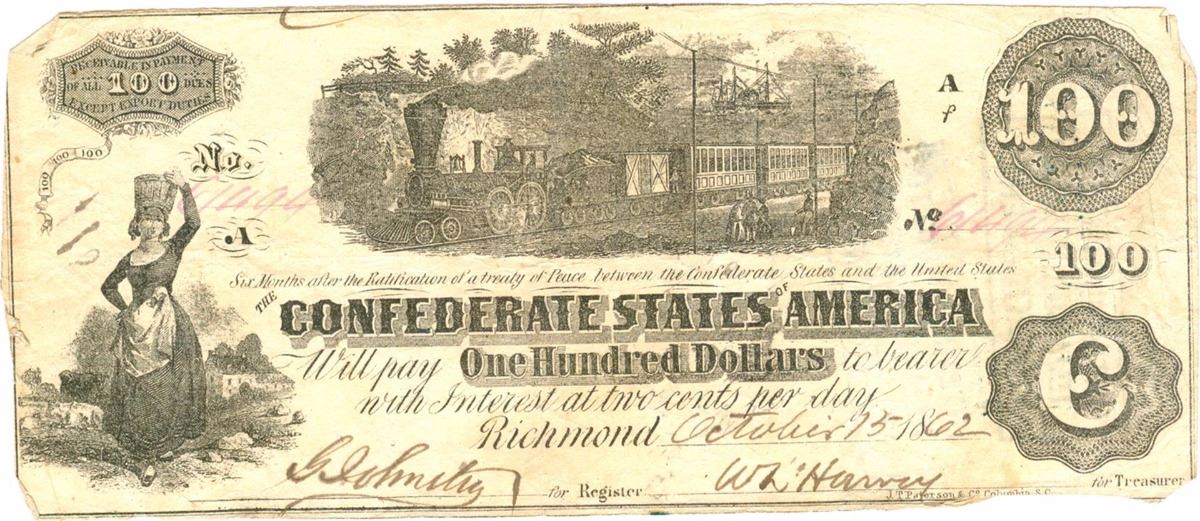 RECEIVABLE IN PAYMENT
OF ALL 100 DUES
EXCEPT EXPORT DUTIES
100 100 100
No.
A
A
f
100
No.
100
Six Months after the Ratification of a treaty of Peace between the Confederate States and the United States
THE CONFEDERATE STATES OF AMERICA
Will pay One Hundred Dollars to bearer
with Interest at two cents per day
Richmond October 15 1862
C
for Register
W L Harvey
for Treasurer
J.T. Paterson & Co. Columbia, S.C.